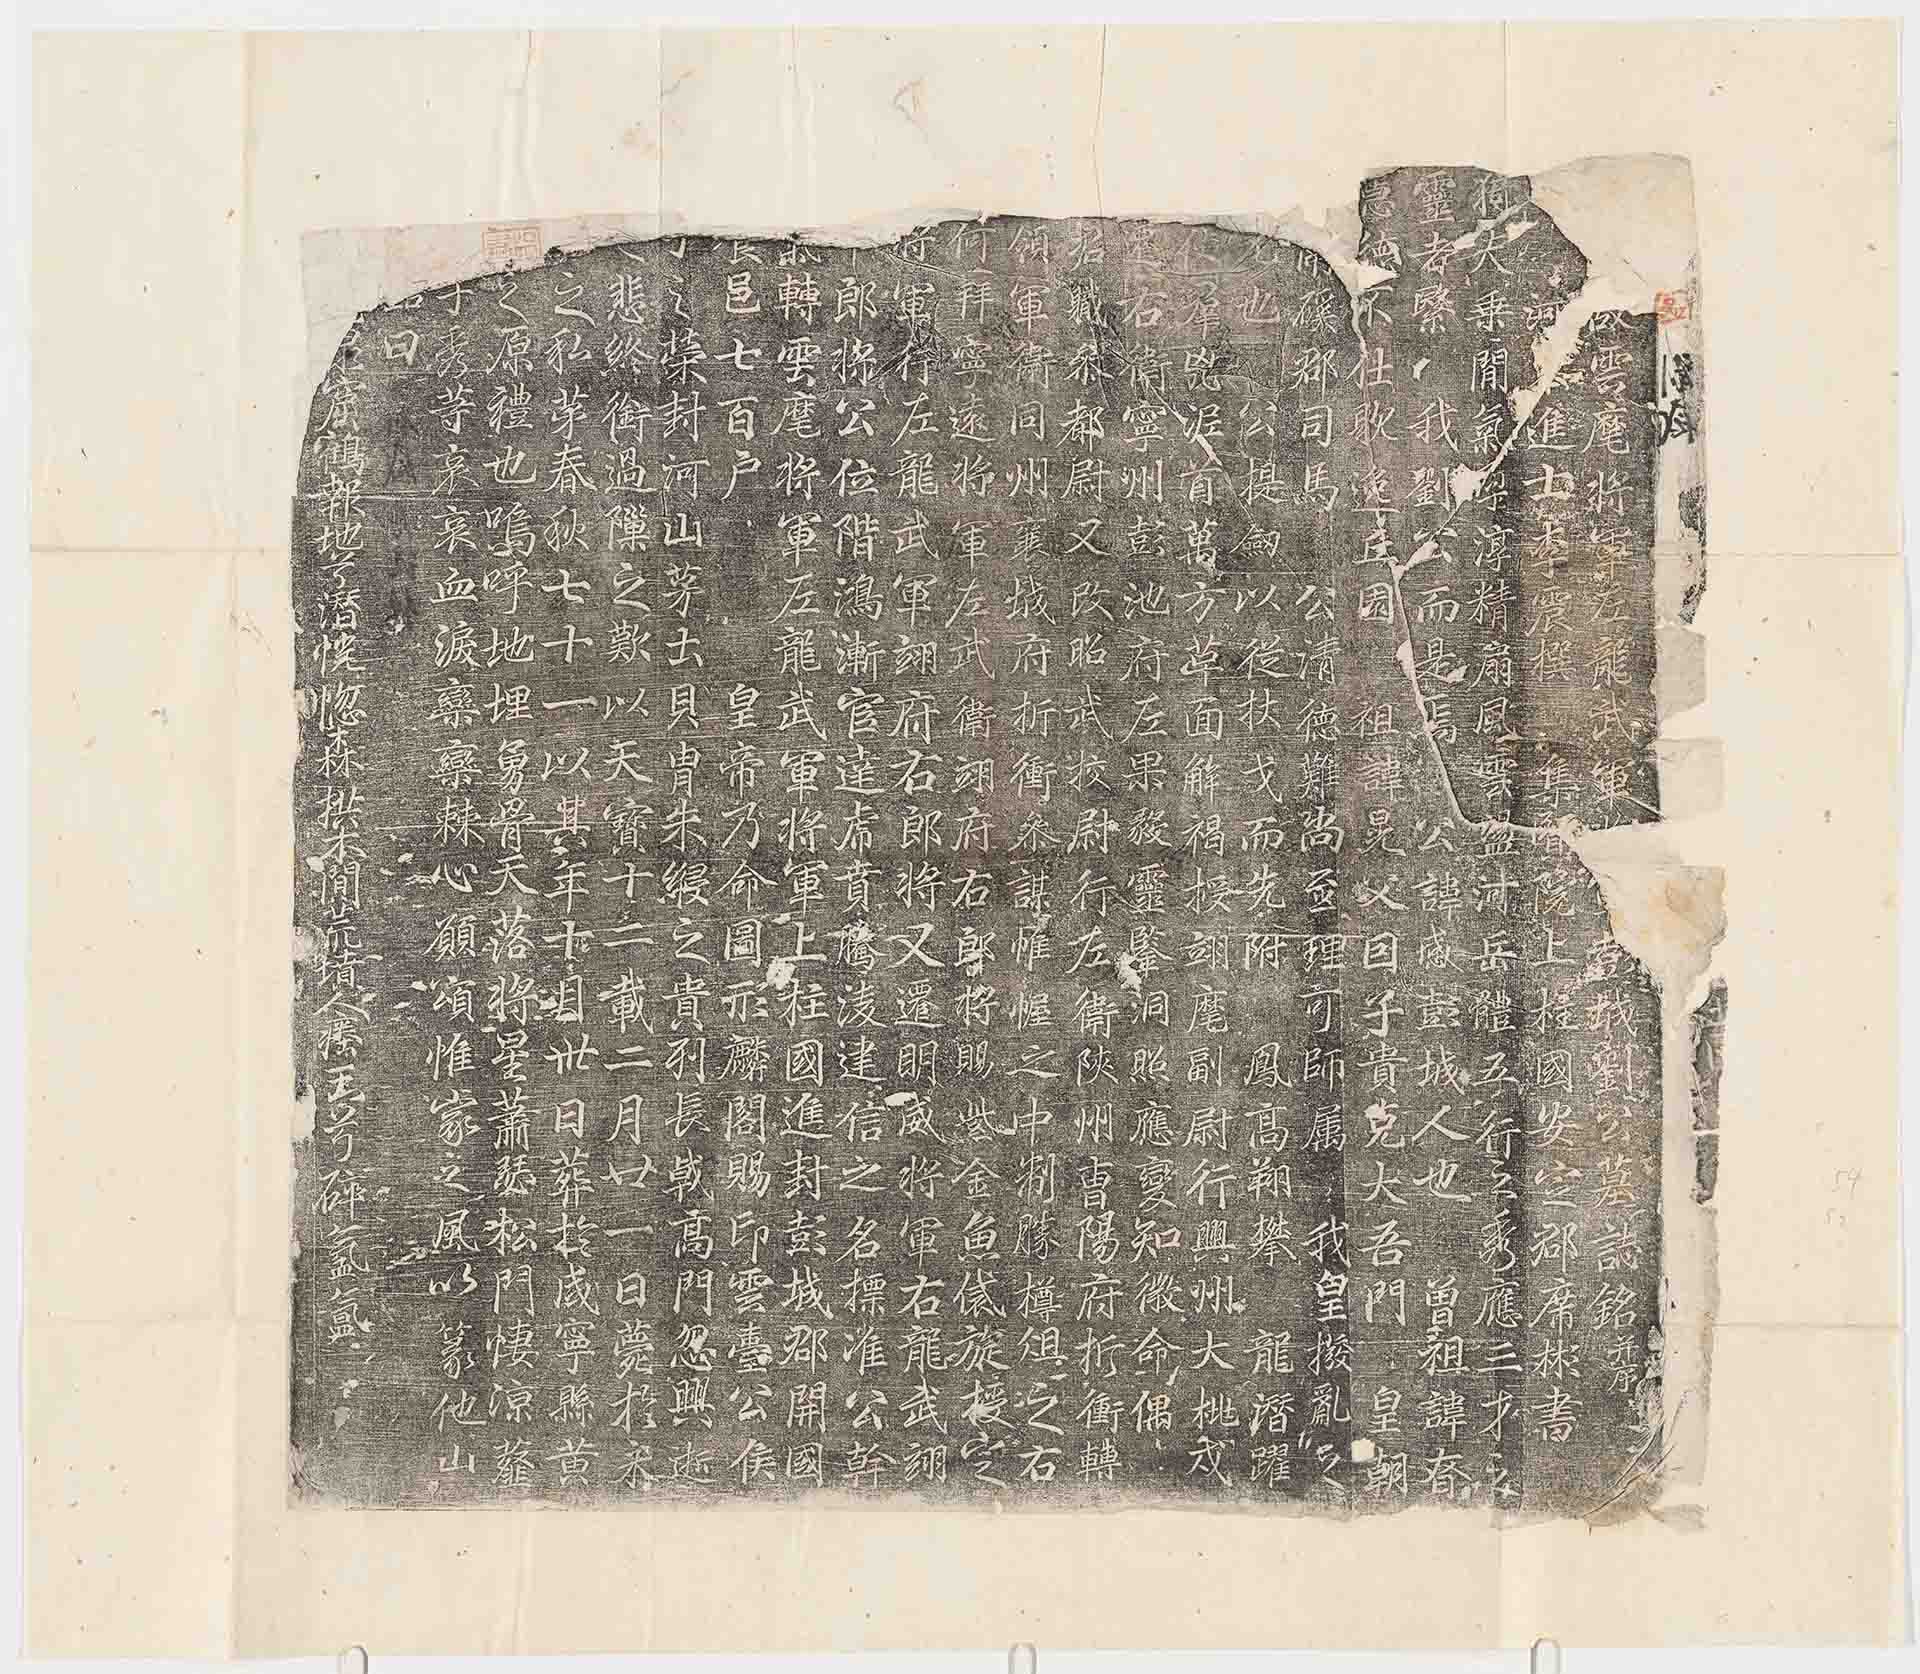 故雲麾將軍左龍武軍將 彭城劉公墓誌銘并序
河 進士李震撰 集賢院上柱國安定郡席彬書
天乘間氣 淳精扇風雲盪河岳體五行之秀應三才之
靈者繄我劉公而是焉 公諱感彭城人也 曾祖諱眘
德不仕耿逸丘園 祖諱晃父因子貴克大吾門 皇朝
磎郡司馬 公清德難尚至理可師属 我皇撥亂之
也 公提劔以從扶戈而先附鳳高翔攀 龍潛躍
群兇泥首萬方革面解褐授翊麾副尉行興州大桃戍
右衛寧州彭池府左果毅靈鑒洞照應變知微命偶
職叅都尉又改昭武挍尉行左衛陝州曹陽府折衝轉
領軍衛同州襄城府折衝叅謀帷幄之中制勝樽俎之右
何拜寧遠將軍左武衛翊府右郎將賜紫金魚袋旋授定
將軍行左龍武軍翊府右郎將又遷明威將軍右龍武翊
郎將公位階鴻漸官達虎賁騰淩建信之名摽准公幹
轉雲麾將軍左龍武軍將軍上柱國進封彭城郡開國
食邑七百户 皇帝乃命圖形麟閣賜印雲臺公侯
之榮封河山茅土貝冑朱綬之貴列長戟高門忽興逝
悲終銜過隟之歎以天寶十二載二月廿一日薨於永
之私第春秋七十一以其年十月卅日葬於咸寧縣黄
之原禮也嗚呼地埋勇骨天落將星蕭瑟松門悽涼薤
子秀等哀哀血淚欒欒棘心願頌惟家之風以篆他山
曰
鶴報地兮潛怳惚森拱木間荒墳人瘞玉兮碎氳氳